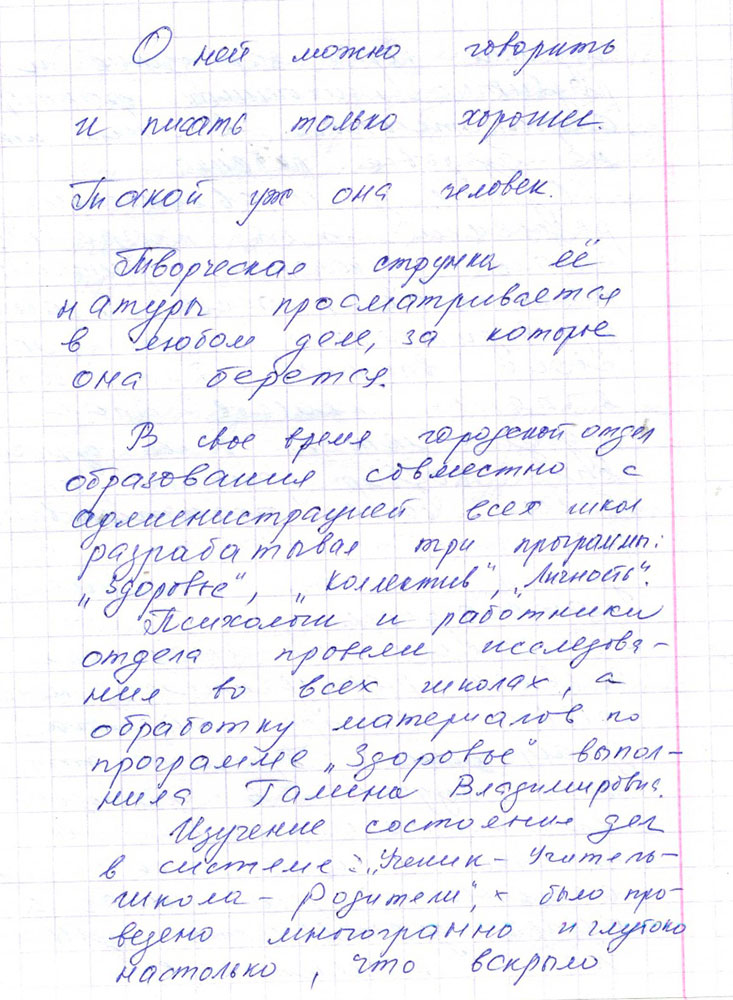 О ней можно говорить
и писать только хорошее.
Такой уж она человек.
Творческая струнка её
натуры просматривается
в любом деле, за которое
она берется.
В свое время городской отдел
образования совместно с
администрацией всех школ
разрабатывал три программы:
„Здоровье", „Коллектив", „Личность".
Психологи и работники
отдела провели исследова-
ния во всех школах, а
обработку материалов по
программе „Здоровье" выпол-
нила Галина Владимировна.
Изучение состояния дел
в системе: „Ученик - Учитель -
школа - Родители", - было про-
ведено многогранно и глубоко
настолько, что вскрыло